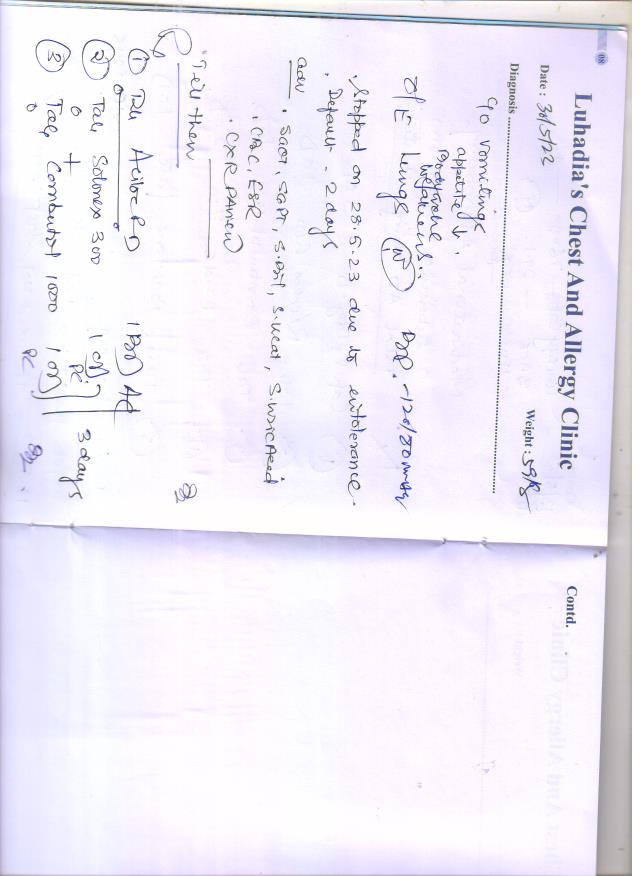 08
Luhadia's Chest And Allergy Clinic
Date : 30/5/22 Weight : 59 kg
Diagnosis ............
c/o vomitings
appetite ↓.
Bodyache
weakness
O/E Lungs (N) B.P. -120/80 mmHg
. Stopped on 28.5.23 due to intolerance.
. Default - 2 days
adv . SGOT, SGPT, S.Bil, S.Creat, S.uric Acid
. CBC, ESR
. CXR PA view
"Till then
Rx
① Tab Aciloc RD 1 BD AC
② Tab Solonex 300 1 OD PC
+ 3 days
③ Tab Combutol 1000 1 OD PC
Contd.